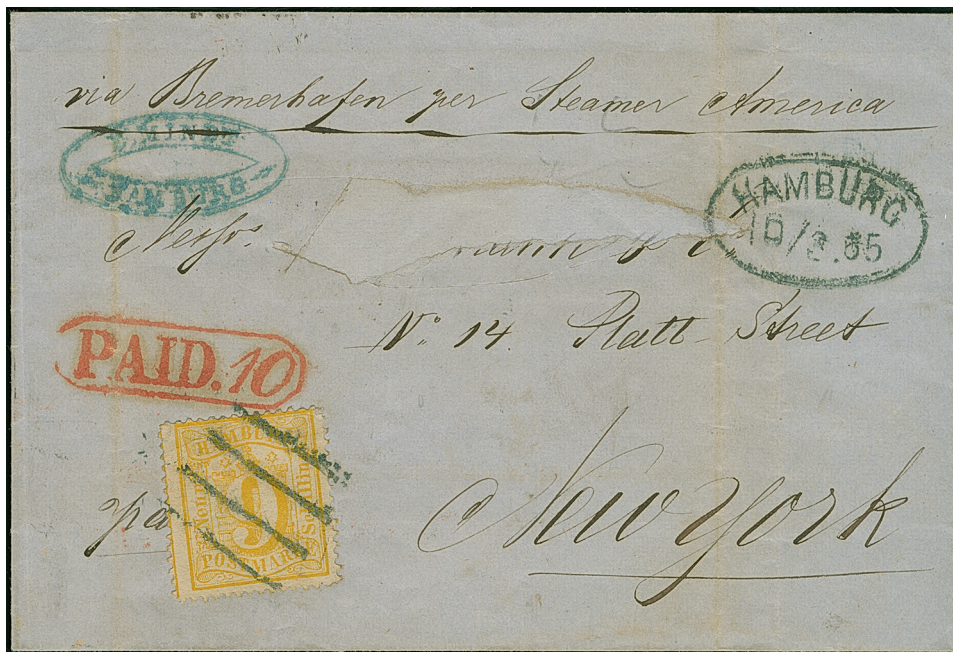 via Bremerhafen per Steamer America
HAMBURG
HAMBURG
10/2.65
Messrs.
No. 14. Platt Street
PAID.10
HAMBURG
Neun
9
Schilling
POSTMARKE
pd
New York